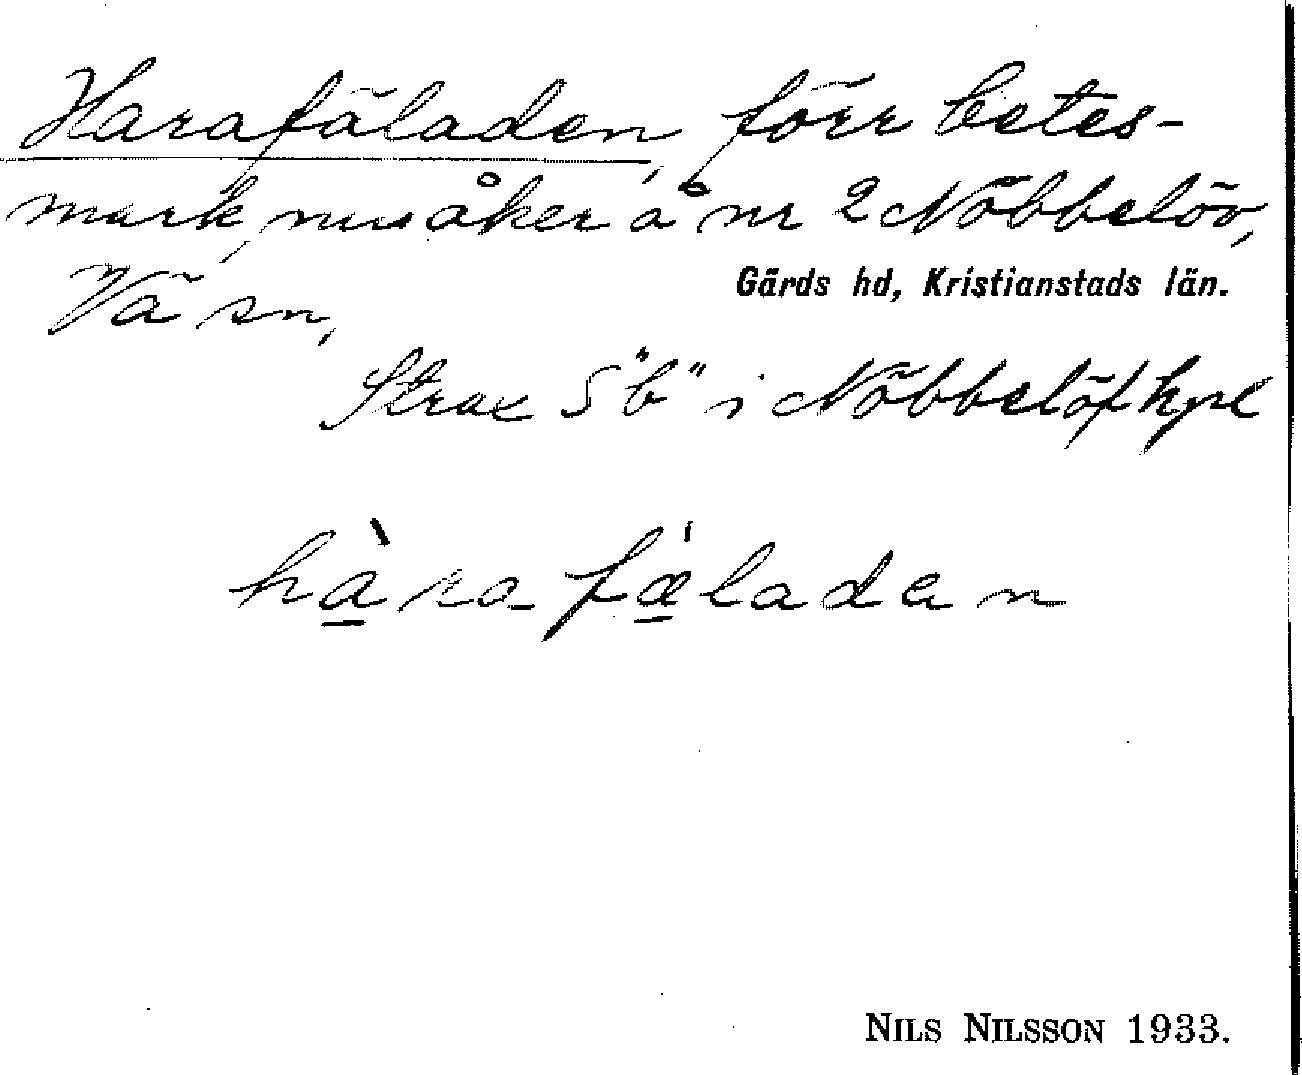 Harafäladen, förr betes-
mark, nu åker å nr 2 Nöbbelöv,
Vä sn,
Gärds hd, Kristianstads län.
Strax S "b" i Nöbbelöf hpl
hàra fǽladen
NILS NILSSON 1933.